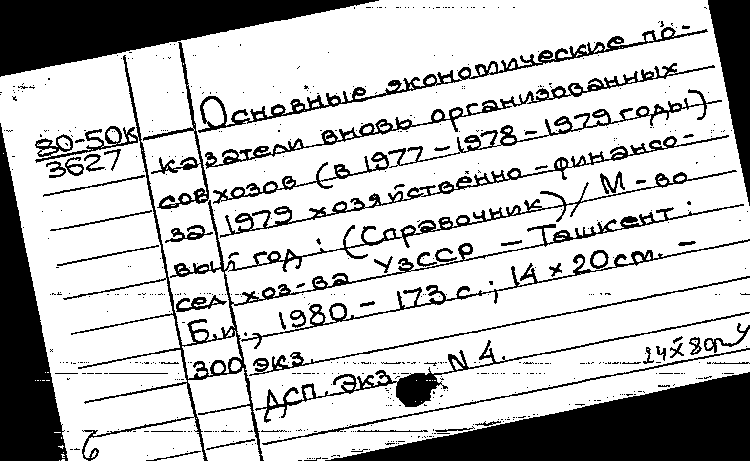 Основные экономические по-
80-50к
3627
казатели вновь организованных
совхозов (в 1977-1978-1979 годы)
за 1979 хозяйственно-финансо-
вый год: (Справочник) / М-во
сел. хоз-ва УзССР - Ташкент:
Б.и., 1980. - 173 с.; 14 x 20 cm. -
300 экз.
ДСП. Экз N 4.
6